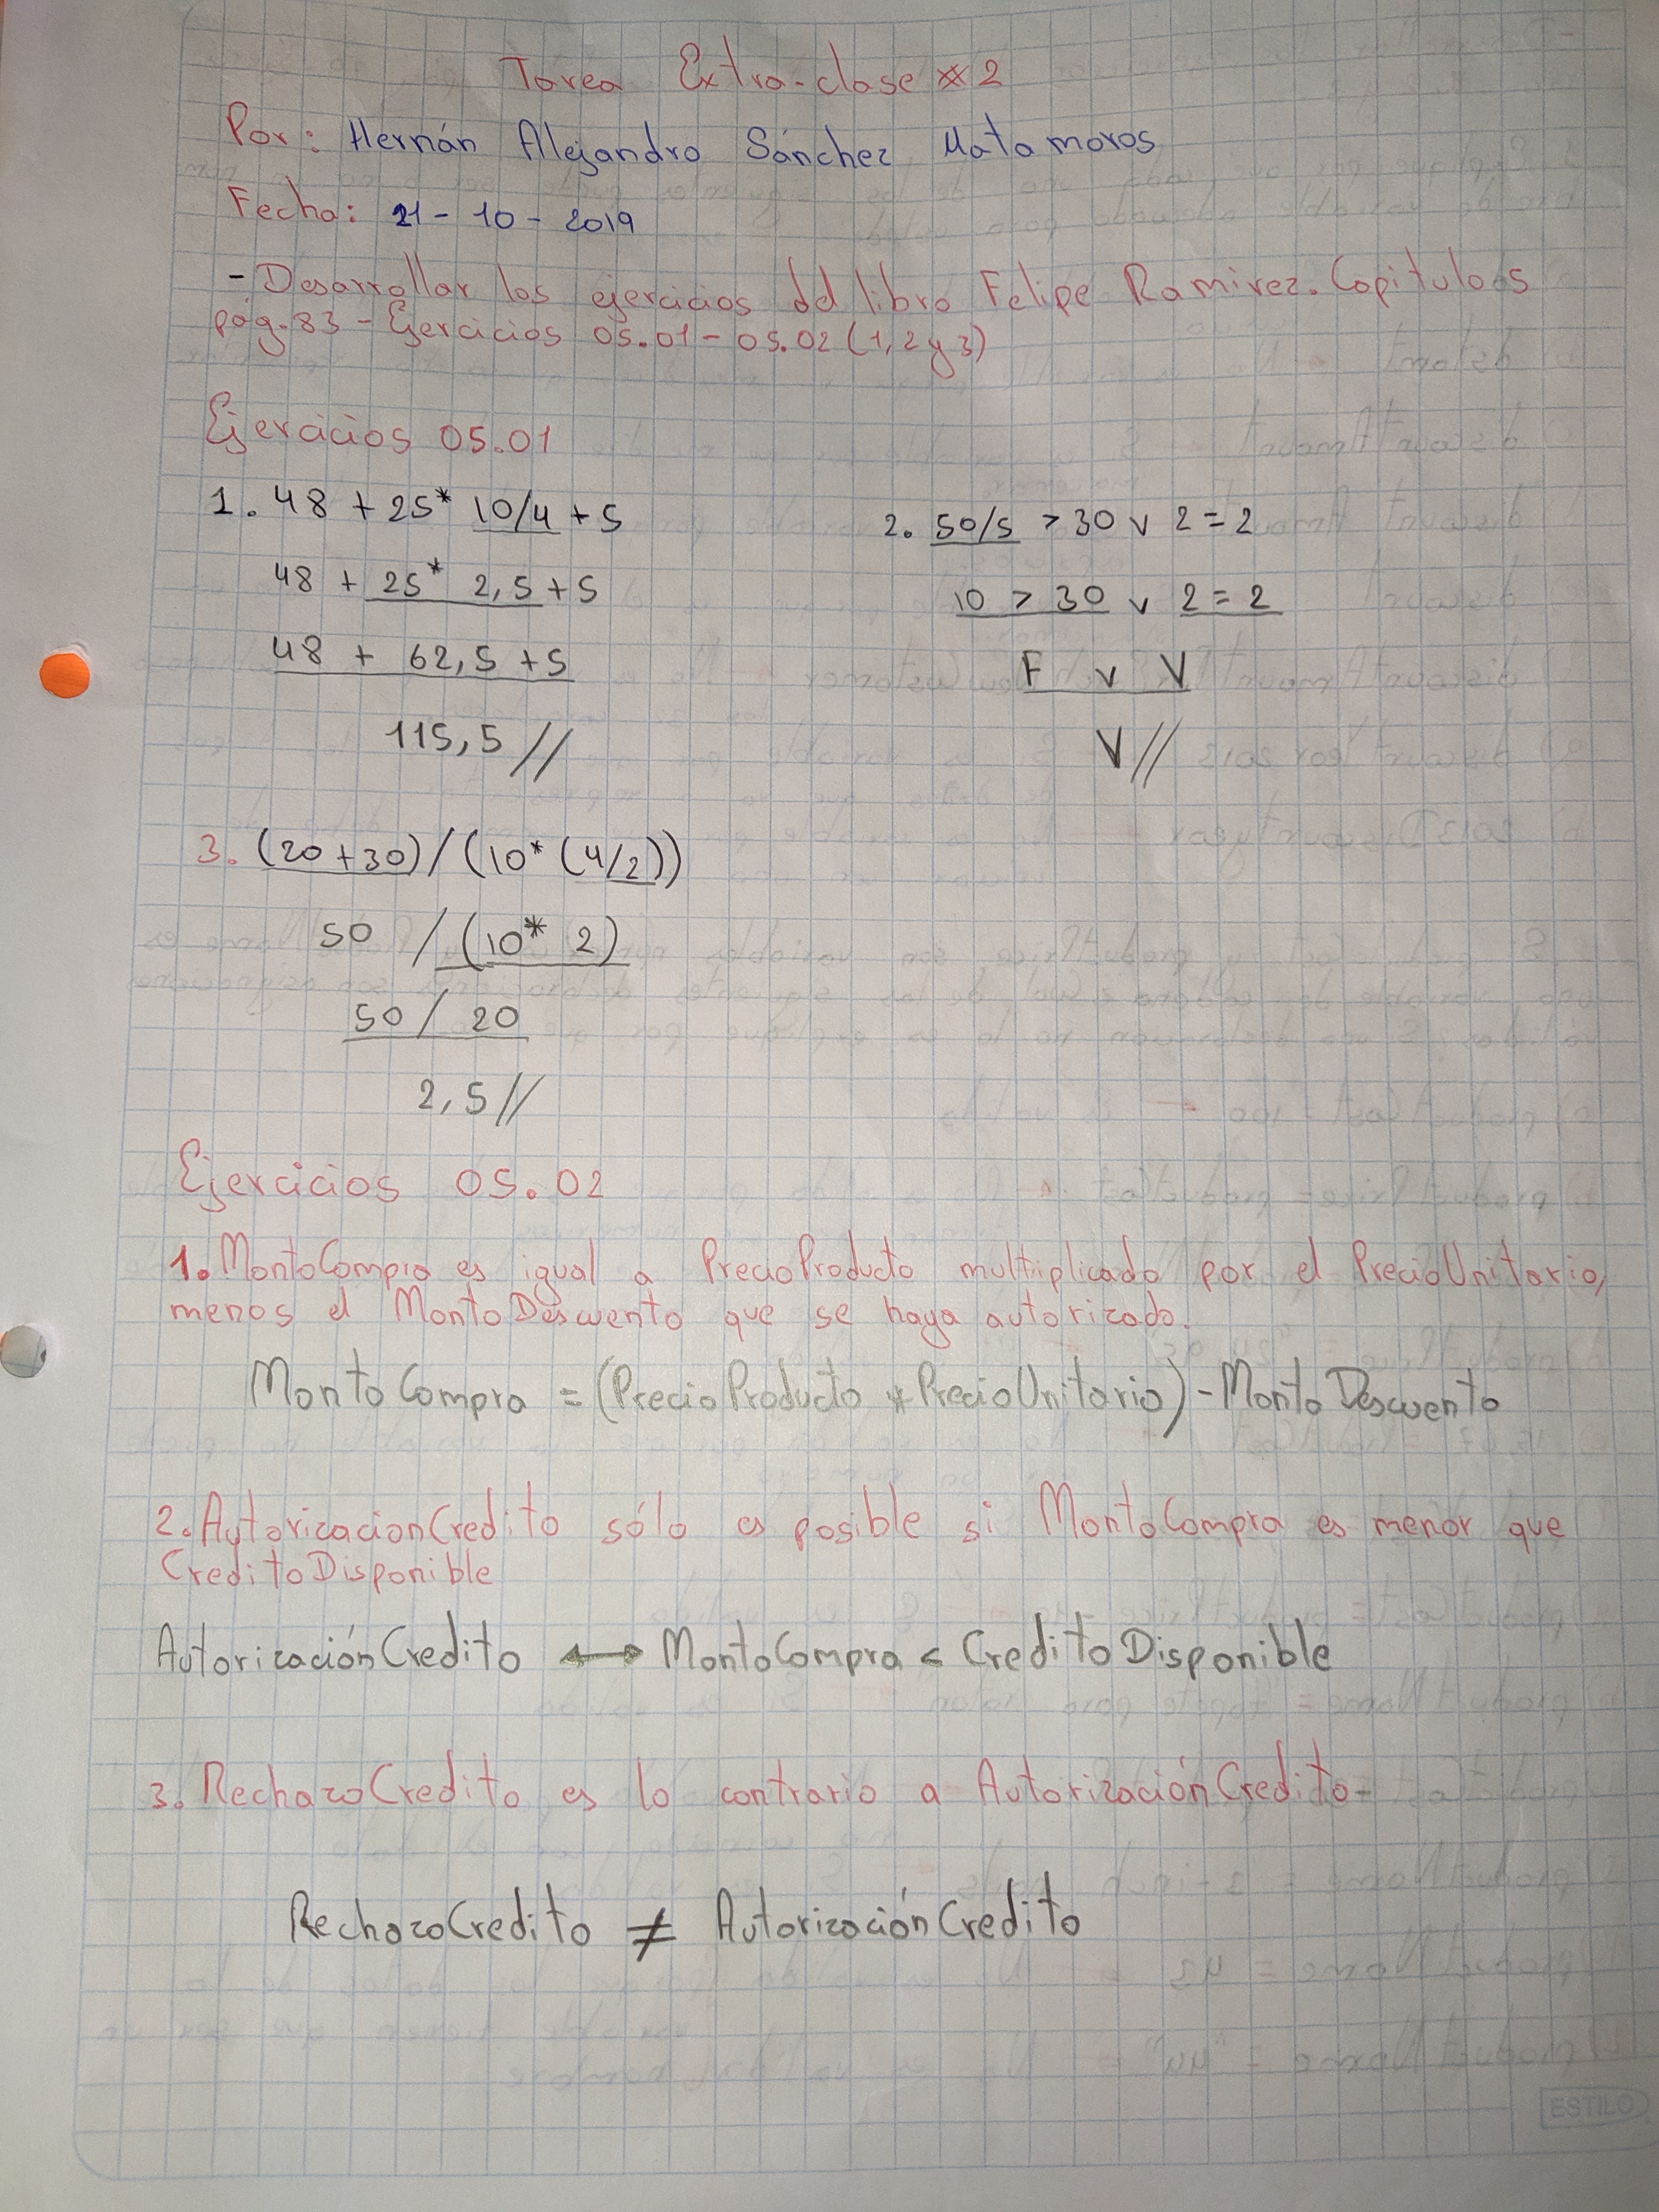 Tarea Extra-clase #2
Por: Hernán Alejandro Sánchez Matamoros
Fecha: 21-10-2019
- Desarrollar los ejercicios del libro Felipe Ramirez. Capitulo 5
pág. 83 - Ejercicios 05.01 - 05.02 (1, 2 y 3)
Ejercicios 05.01
1. 48 + 25* 10/4 + 5
48 + 25* 2,5 + 5
48 + 62,5 + 5
115,5 //
2. 50/5 > 30 v 2 = 2
10 > 30 v 2 = 2
F v V
V //
3. (20 + 30) / (10* (4/2))
50 / (10* 2)
50 / 20
2,5 //
Ejercicios 05.02
1. MontoCompra es igual a PrecioProducto multiplicado por el PrecioUnitario,
menos el MontoDescuento que se haya autorizado.
MontoCompra = (PrecioProducto * PrecioUnitario) - MontoDescuento
2. AutorizacionCredito sólo es posible si MontoCompra es menor que
CreditoDisponible
AutorizaciónCredito ↔ MontoCompra < CreditoDisponible
3. RechazoCredito es lo contrario a AutorizaciónCredito-
RechazoCredito ≠ AutorizaciónCredito
ESTILO